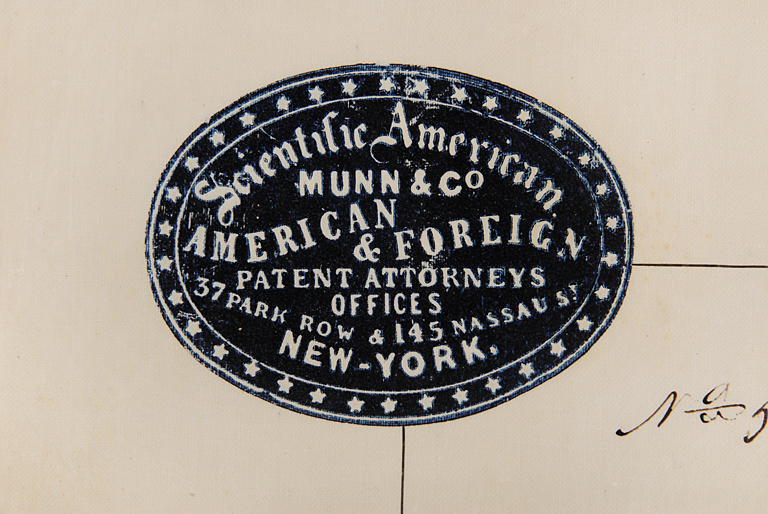 Scientific American
MUNN & CO
AMERICAN
& FOREIGN
PATENT ATTORNEYS
OFFICES
37 PARK ROW & 145 NASSAU ST
NEW-YORK.
No